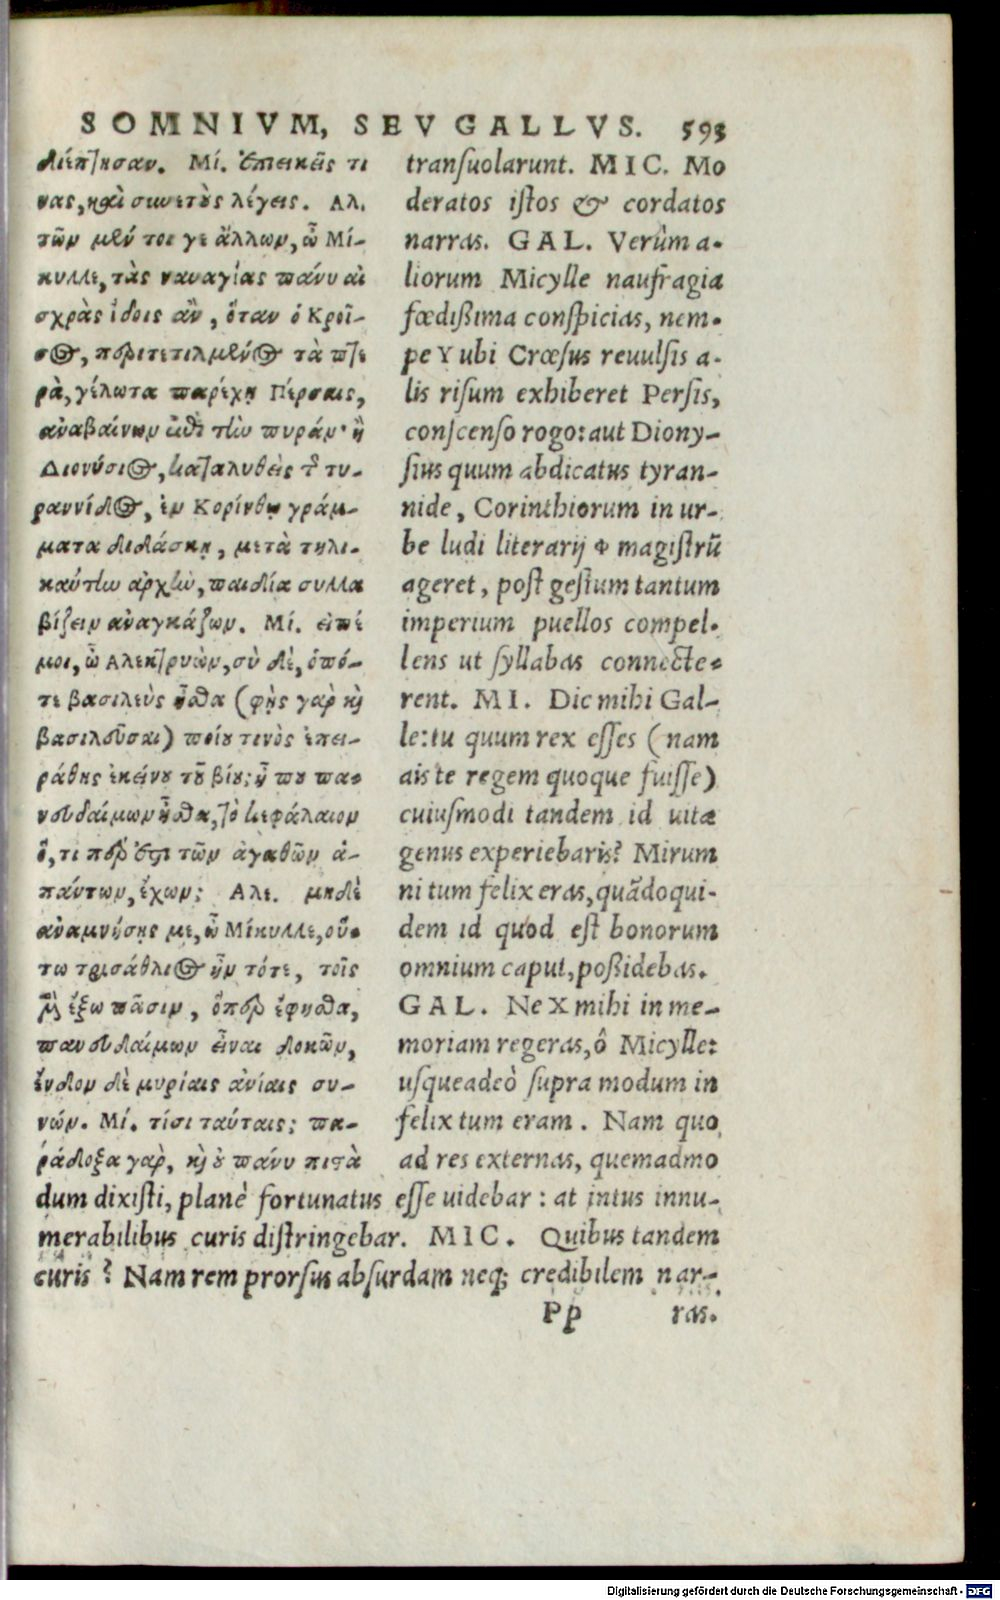 SOMNIVM, SEV GALLVS. 593
διέπτησαν. Μί. ἐπιεικεῖς τι
νας, καὶ συνετοὺς λέγεις. Αλ.
τῶν μέν τοι γε ἄλλων, ὦ Μί-
κυλλε, τὰς ναυαγίας πάνυ αἰ
σχρὰς ἴδοις ἂν, ὅταν ὁ Κροῖ-
σος, περιτετιλμένος τὰ πτε
ρὰ, γέλωτα παρέχῃ Πέρσαις,
ἀναβαίνων ἐπὶ τὴν πυράν· ἢ
Διονύσιος, καταλυθεὶς τῆς τυ-
ραννίδος, ἐν Κορίνθῳ γράμ-
ματα διδάσκῃ, μετὰ τηλι-
καύτην ἀρχὴν, παιδία συλλα
βίζειν ἀναγκάζων. Μί. εἰπέ
μοι, ὦ Αλεκτρυὼν, σὺ δὲ, ὁπό-
τε βασιλεὺς ἦσθα (φῂς γαρ καὶ
βασιλεῦσαι) ποίου τινὸς ἐπει-
ράθης ἐκείνου τοῦ βίου; ἦ που πα-
νευδαίμων ἦσθα, τὸ κεφάλαιον
ὅ,τι περ ἐστὶ τῶν ἀγαθῶν ἁ-
πάντων, ἔχων; Αλε. μηδὲ
ἀναμνήσῃς με, ὦ Μίκυλλε, οὕ-
τω τρισάθλιος ἦν τότε, τοῖς
μὲν ἔξω πᾶσιν, ὅπερ ἔφησθα,
πανευδαίμων εἶναι δοκῶν,
ἔνδον δὲ μυρίαις ἀνίαις συ-
νών. Μί. τίσι ταύταις; πα-
ράδοξα γαρ, καὶ οὐ πάνυ πιστὰ
transuolarunt. MIC. Mo
deratos istos & cordatos
narras. GAL. Verùm a-
liorum Micylle naufragia
fœdißima conspicias, nem-
pe Y ubi Crœsus reuulsis a-
lis risum exhiberet Persis,
conscenso rogo: aut Diony-
sius quum abdicatus tyran-
nide, Corinthiorum in ur-
be ludi literarij Φ magistrũ
ageret, post gestum tantum
imperium puellos compel-
lens ut syllabas connecte-
rent. MI. Dic mihi Gal-
le: tu quum rex esses (nam
ais te regem quoque fuisse)
cuiusmodi tandem id uitæ
genus experiebaris? Mirum
ni tum felix eras, quãdoqui-
dem id quod est bonorum
omnium caput, poßidebas.
GAL. Ne X mihi in me-
moriam regeras, ô Micylle:
usqueadeò supra modum in
felix tum eram. Nam quo
ad res externas, quemadmo
dum dixisti, planè fortunatus esse uidebar: at intus innu-
merabilibus curis distringebar. MIC. Quibus tandem
curis? Nam rem prorsus absurdam neq; credibilem nar-
Pp ras.
Digitalisierung gefördert durch die Deutsche Forschungsgemeinschaft - DFG